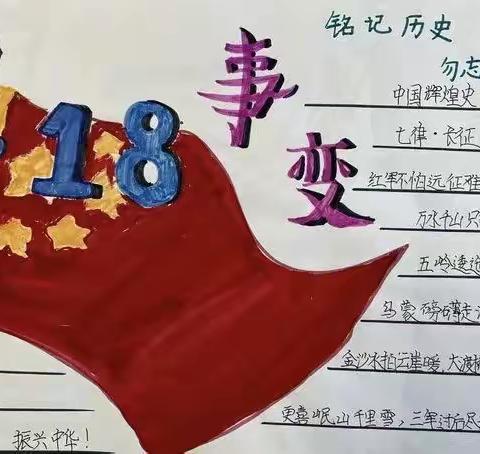 铭记历史
勿忘
·18
事
变
中国辉煌史
七律·长征
红军不怕远征难
万水千山只
五岭逶迤
乌蒙磅礴走
金沙水拍云崖暖,大渡
更喜岷山千里雪,三军过后尽
振兴中华!